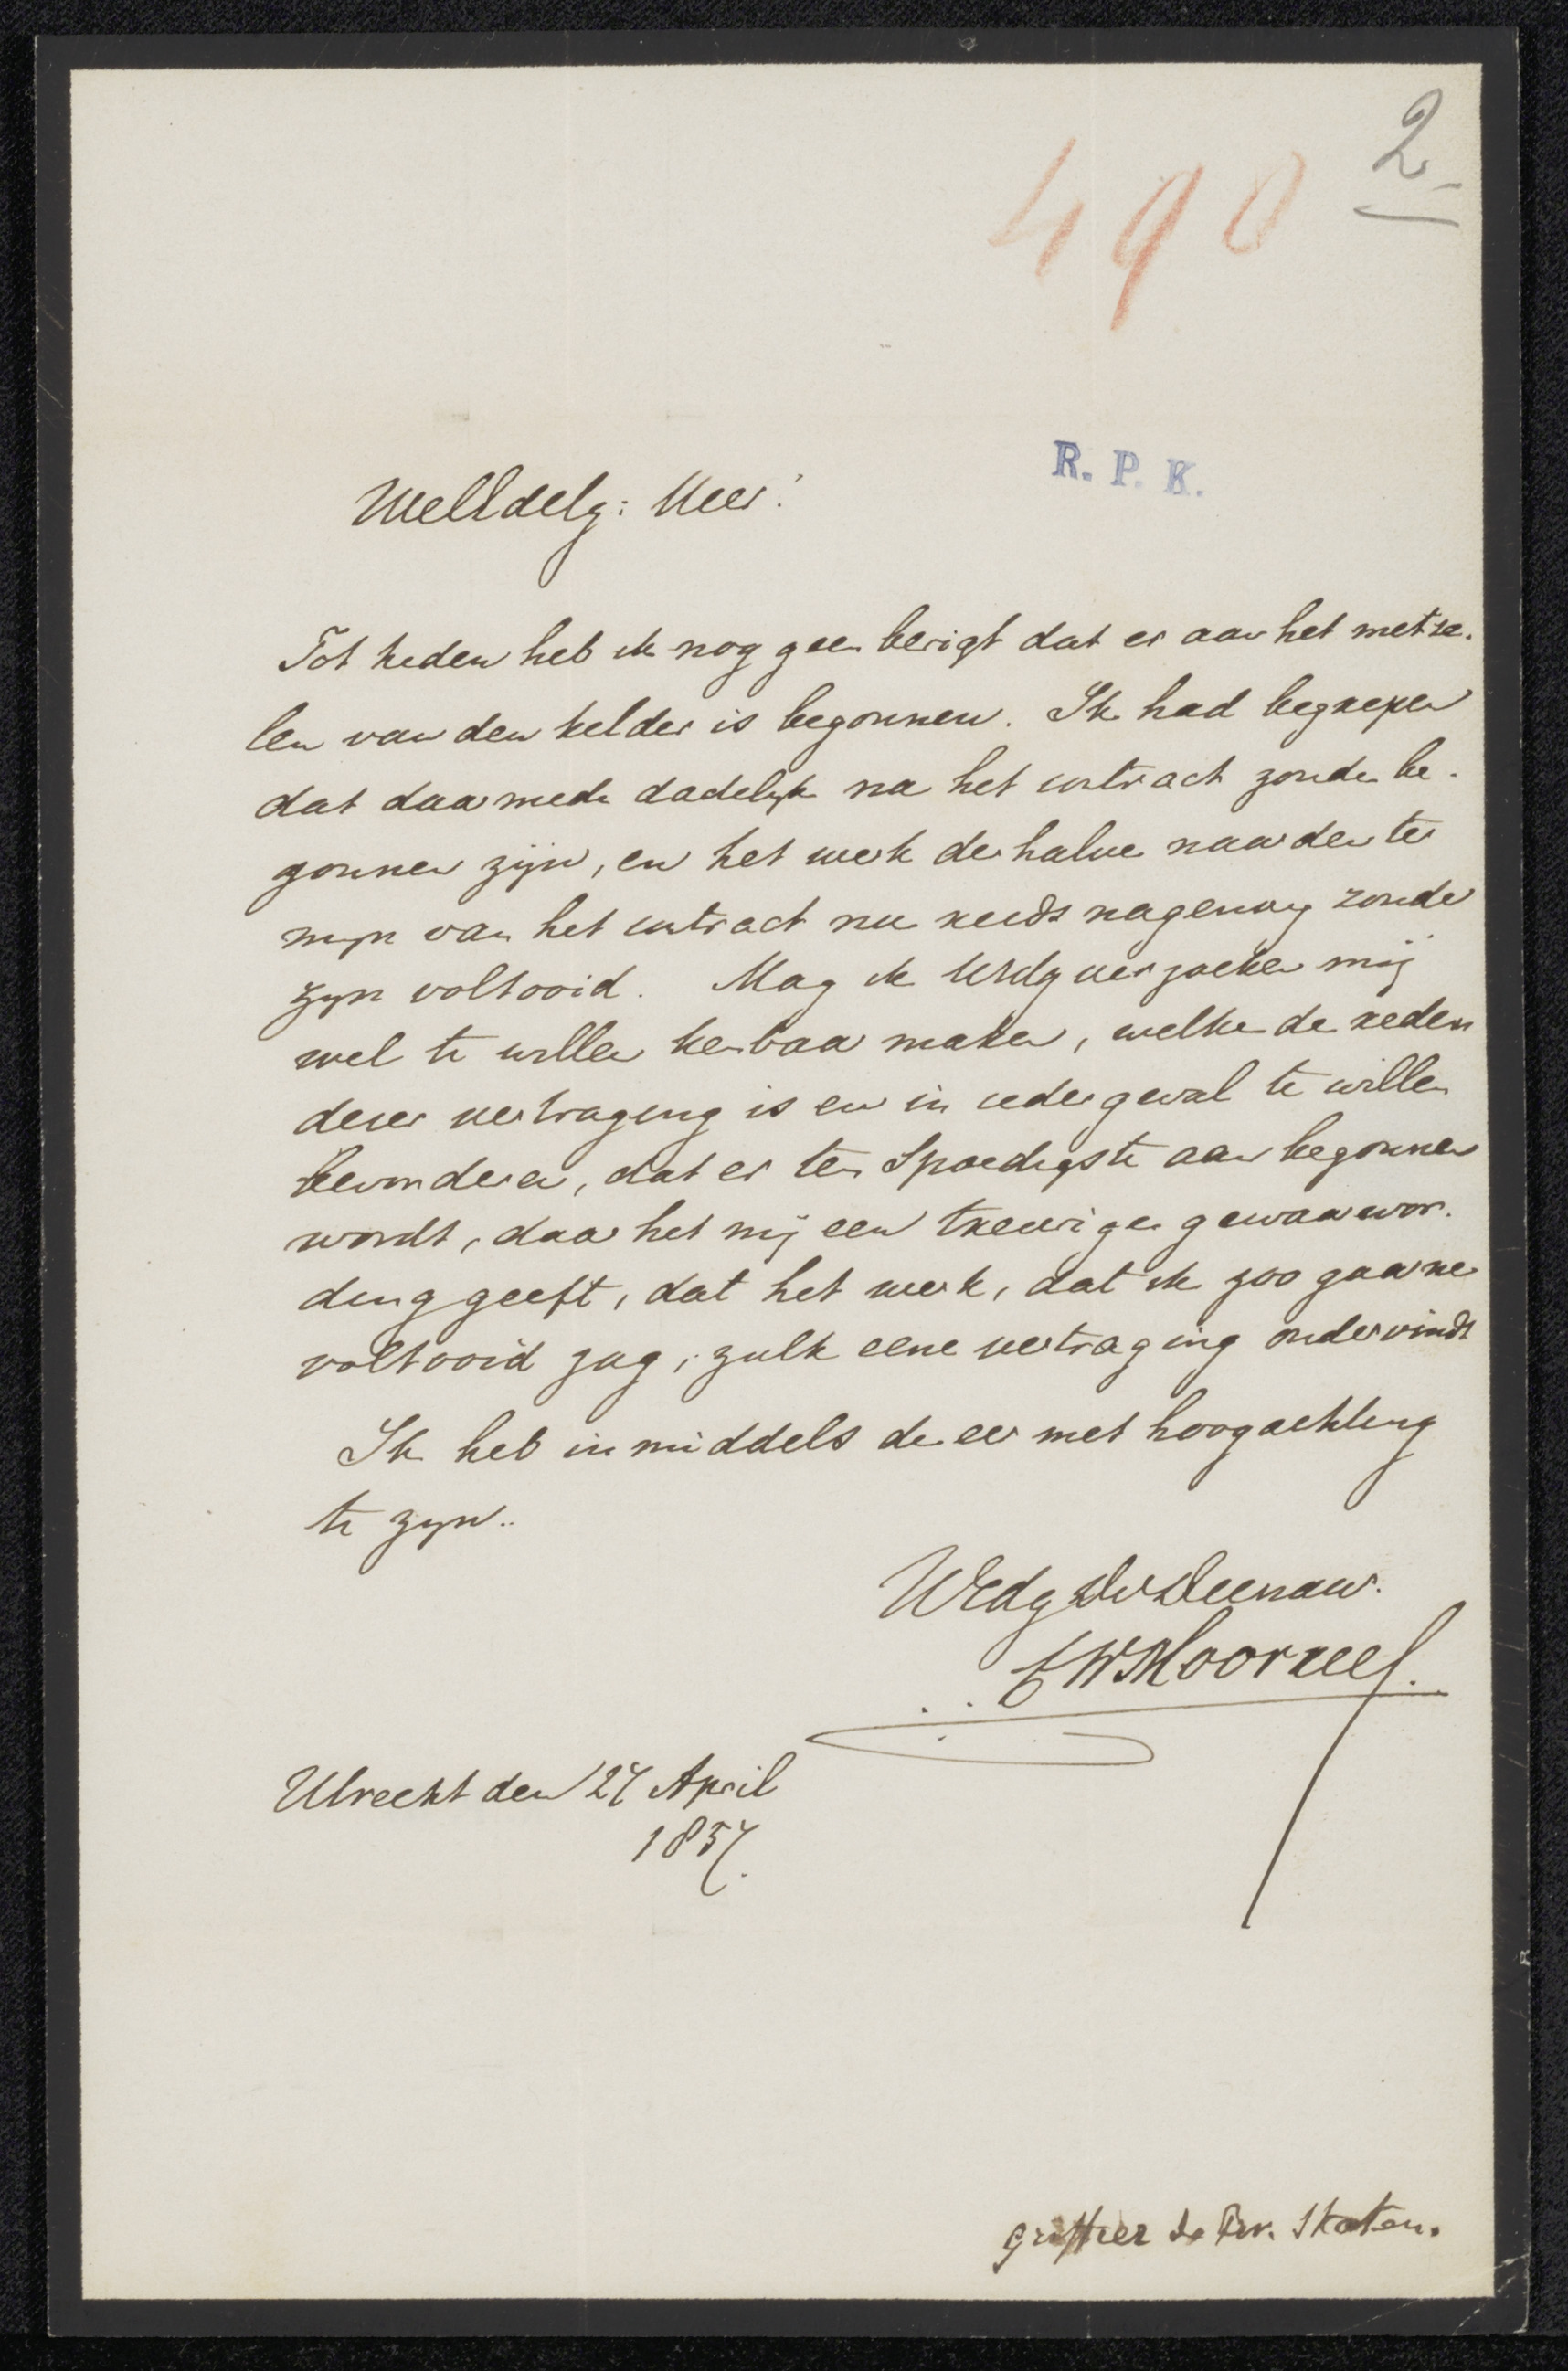 2
490
R. P. K.
WelEdelg: Heer!
Tot heden heb ik nog geen berigt dat er aan het metse-
len van den kelder is begonnen. Ik had begrepen
dat daarmede dadelijk na het contract zoude be-
gonnen zijn, en het werk derhalve naar den ter
mijn van het contract nu reeds nagenoeg zoude
zijn voltooid. Mag ik UEdg verzoeken mij
wel te willen kenbaar maken, welke de reden
dezer vertraging is en in ieder geval te willen
bevorderen, dat er ten Spoedigste aan begonnen
wordt, daar het mij een treurige gewaarwor-
ding geeft, dat het werk, dat ik zoo gaarne
voltooid zag, zulk eene vertraging ondervindt
Ik heb inmiddels de eer met hoogachting
te zijn..
UEdg DvDienaar.
Utrecht den 27 April
1857.
griffier de Prov. Staten.